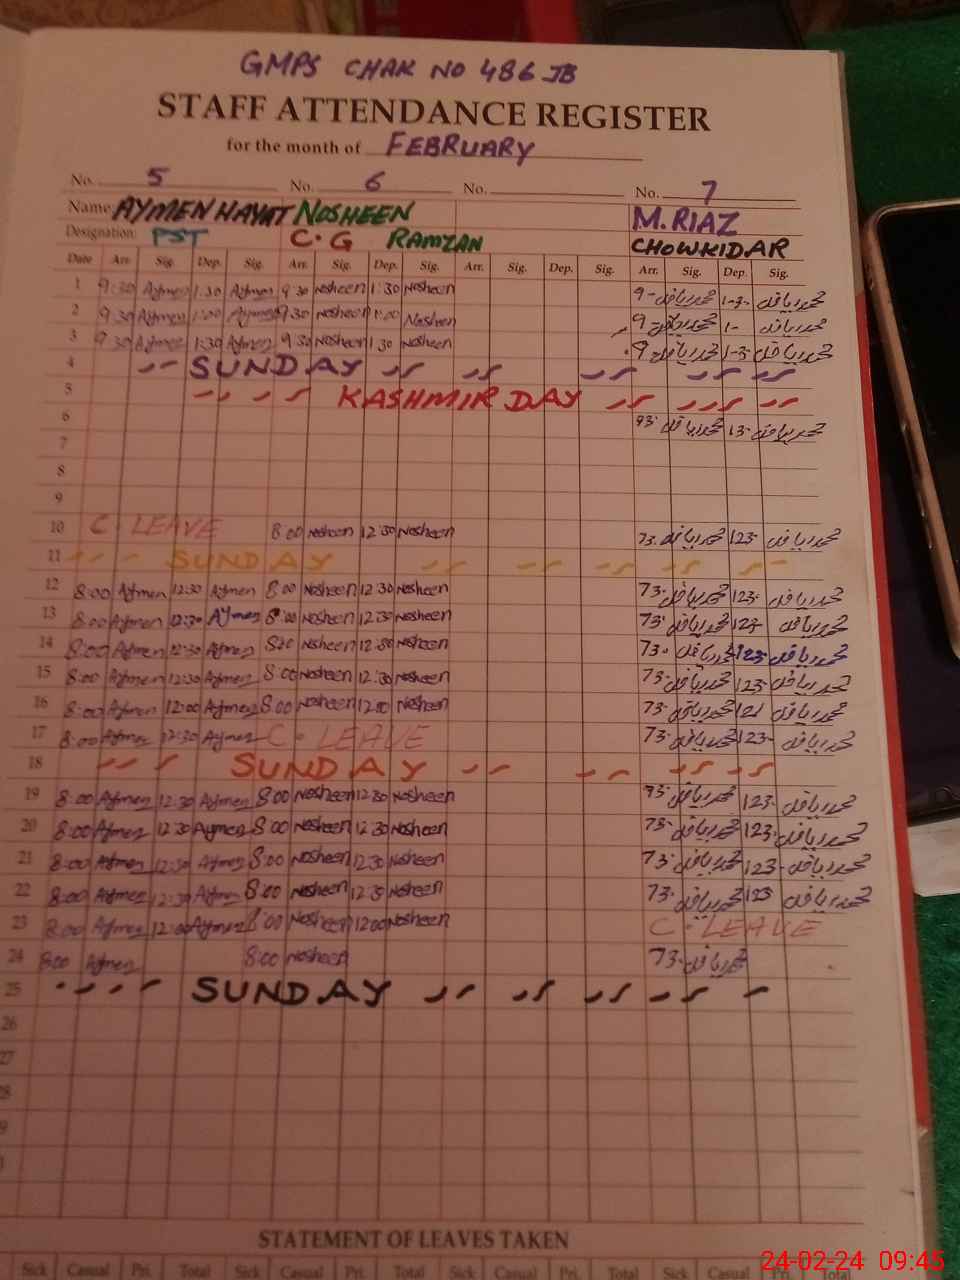 GMPS CHAK NO 486 JB
STAFF ATTENDANCE REGISTER
for the month of FEBRUARY
No. 5 No. 6 No. No. 7
Name AYMEN HAYAT NOSHEEN M.RIAZ
Designation: PST C.G RAMZAN CHOWKIDAR
Date Arr. Sig. Dep. Sig. Arr. Sig. Dep. Sig. Arr. Sig. Dep. Sig. Arr. Sig. Dep. Sig.
1 9:30 Aymen 1:30 Aymen 9 30 Nosheen 1:30 Nosheen 9- محمد ریاض 1-3- محمد ریاض
2 9 30 Aymen 1:00 Aymen 9:30 Nosheen 1:00 Nosheen 9- محمد ریاض 1- محمد ریاض
3 9 30 Aymen 1:30 Aymen 9:30 Nosheen 1:30 Nosheen 9- محمد ریاض 1-3- محمد ریاض
4 SUNDAY
5 KASHMIR DAY
6 93- محمد ریاض 13- محمد ریاض
7
8
9
10 C. LEAVE 8:00 Nosheen 12:30 Nosheen 73- محمد ریاض 123- محمد ریاض
11 SUNDAY
12 8:00 Aymen 12:30 Aymen 8:00 Nosheen 12:30 Nosheen 73- محمد ریاض 123- محمد ریاض
13 8:00 Aymen 12:30 Aymen 8:00 Nosheen 12:30 Nosheen 73- محمد ریاض 123- محمد ریاض
14 8:00 Aymen 12:30 Aymen 8:00 Nosheen 12:30 Nosheen 73- محمد ریاض 123- محمد ریاض
15 8:00 Aymen 12:30 Aymen 8:00 Nosheen 12:30 Nosheen 73- محمد ریاض 123- محمد ریاض
16 8:00 Aymen 12:00 Aymen 8:00 Nosheen 12:00 Nosheen 73- محمد ریاض 121 محمد ریاض
17 8:00 Aymen 12:30 Aymen C. LEAVE 73- محمد ریاض 123- محمد ریاض
18 SUNDAY
19 8:00 Aymen 12:30 Aymen 8:00 Nosheen 12:30 Nosheen 73- محمد ریاض 123- محمد ریاض
20 8:00 Aymen 12:30 Aymen 8:00 Nosheen 12:30 Nosheen 73- محمد ریاض 123- محمد ریاض
21 8:00 Aymen 12:30 Aymen 8:00 Nosheen 12:30 Nosheen 73- محمد ریاض 123- محمد ریاض
22 8:00 Aymen 12:30 Aymen 8:00 Nosheen 12:30 Nosheen 73- محمد ریاض 123 محمد ریاض
23 8:00 Aymen 12:00 Aymen 8:00 Nosheen 12:00 Nosheen C. LEAVE
24 8:00 Aymen 8:00 Nosheen 73- محمد ریاض
25 SUNDAY
26
27
28
STATEMENT OF LEAVES TAKEN
Sick Casual Pri. Total Sick Casual Pri. Total Sick Casual Pri. Total Sick Casual Pri. Total
24-02-24 09:45